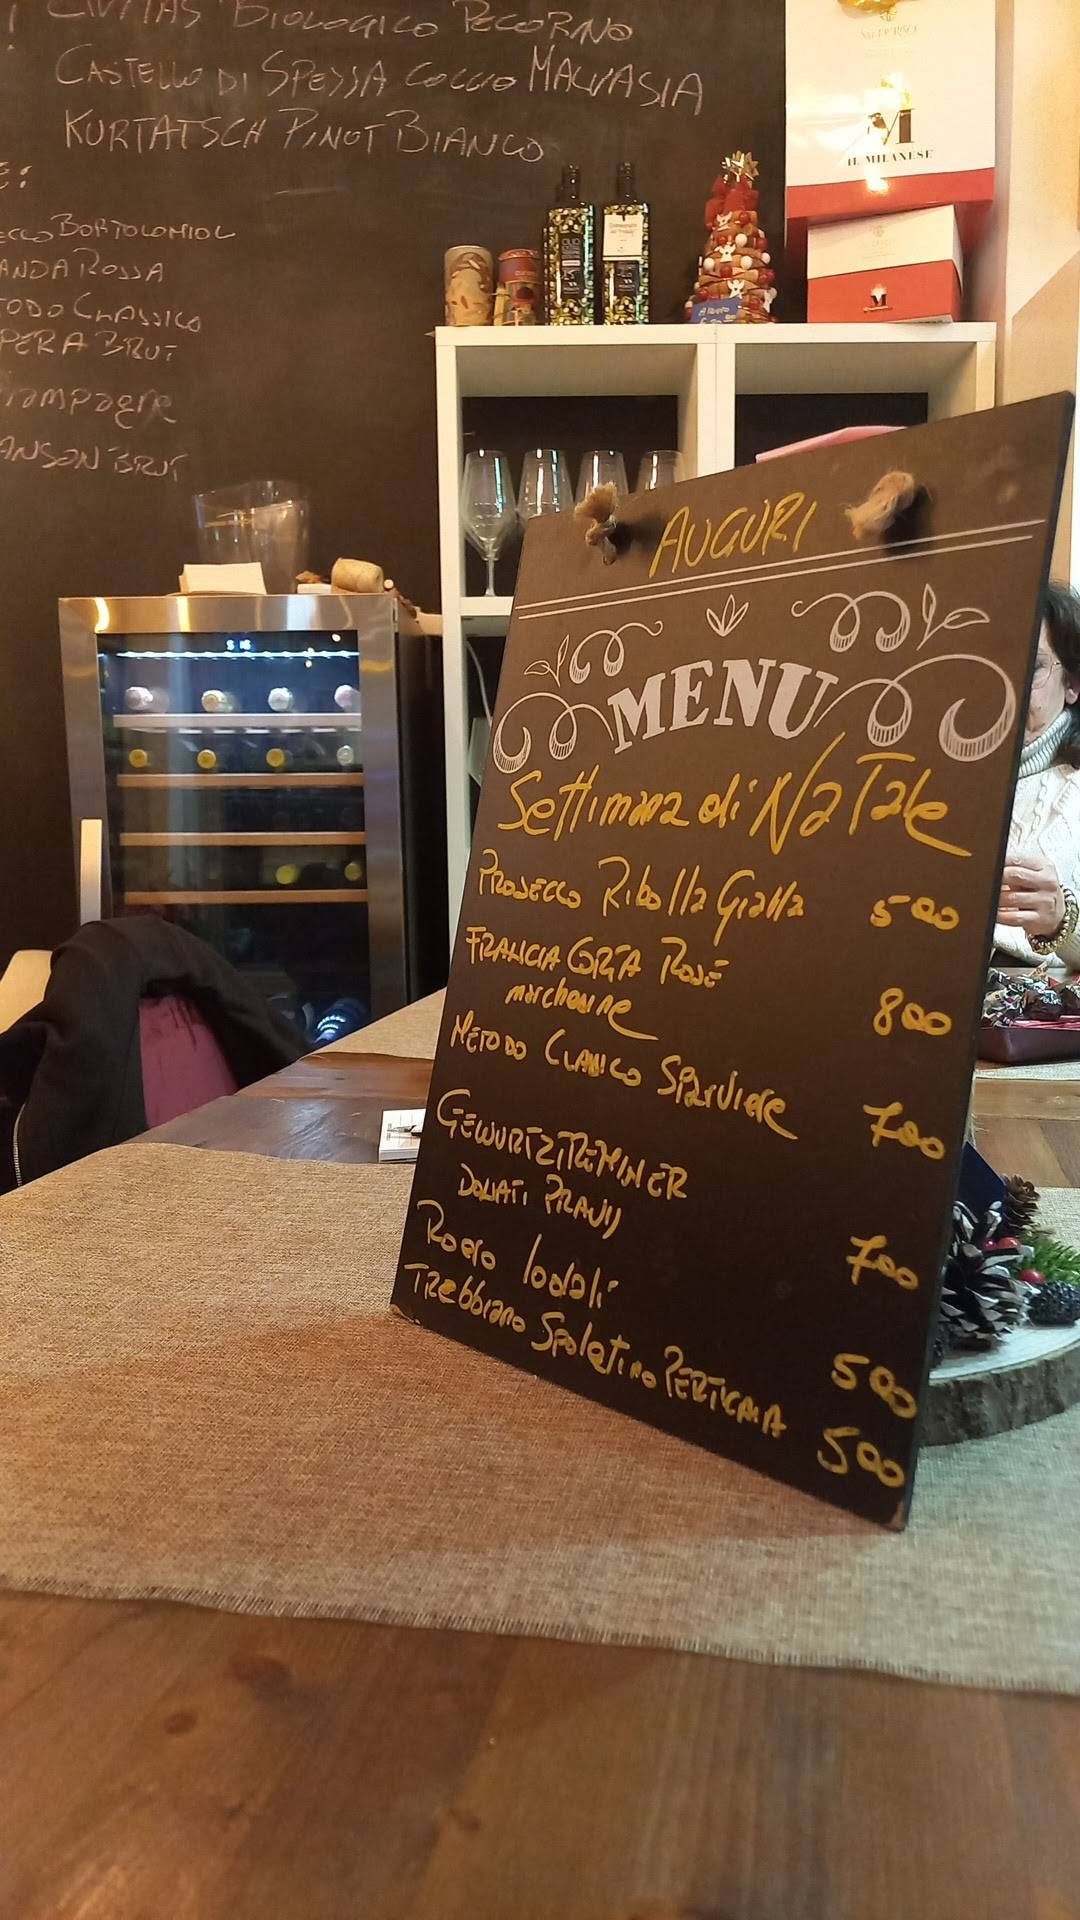 CIVITAS BIOLOGICO PECORINO
CASTELLO DI SPESSA COLLIO MALVASIA
KURTATSCH PINOT BIANCO
E:
ECCO BORTOLOMIOL
ANDA ROSSA
TODO CLASSICO
PERA BRUT
iampagne
ANSON BRUT
IL MILANESE
AUGURI
MENU
Settimana di NaTale
PROSECCO Ribolla Gialla 500
FRANCIACORTA ROSÉ
marchesine 800
METODO CLASSICO Sparviere 700
GEWURTZTREMINER
DONATI PRAVIJ 700
Roero lodali 500
TREbbiano Spoletino PERTICAIA 500